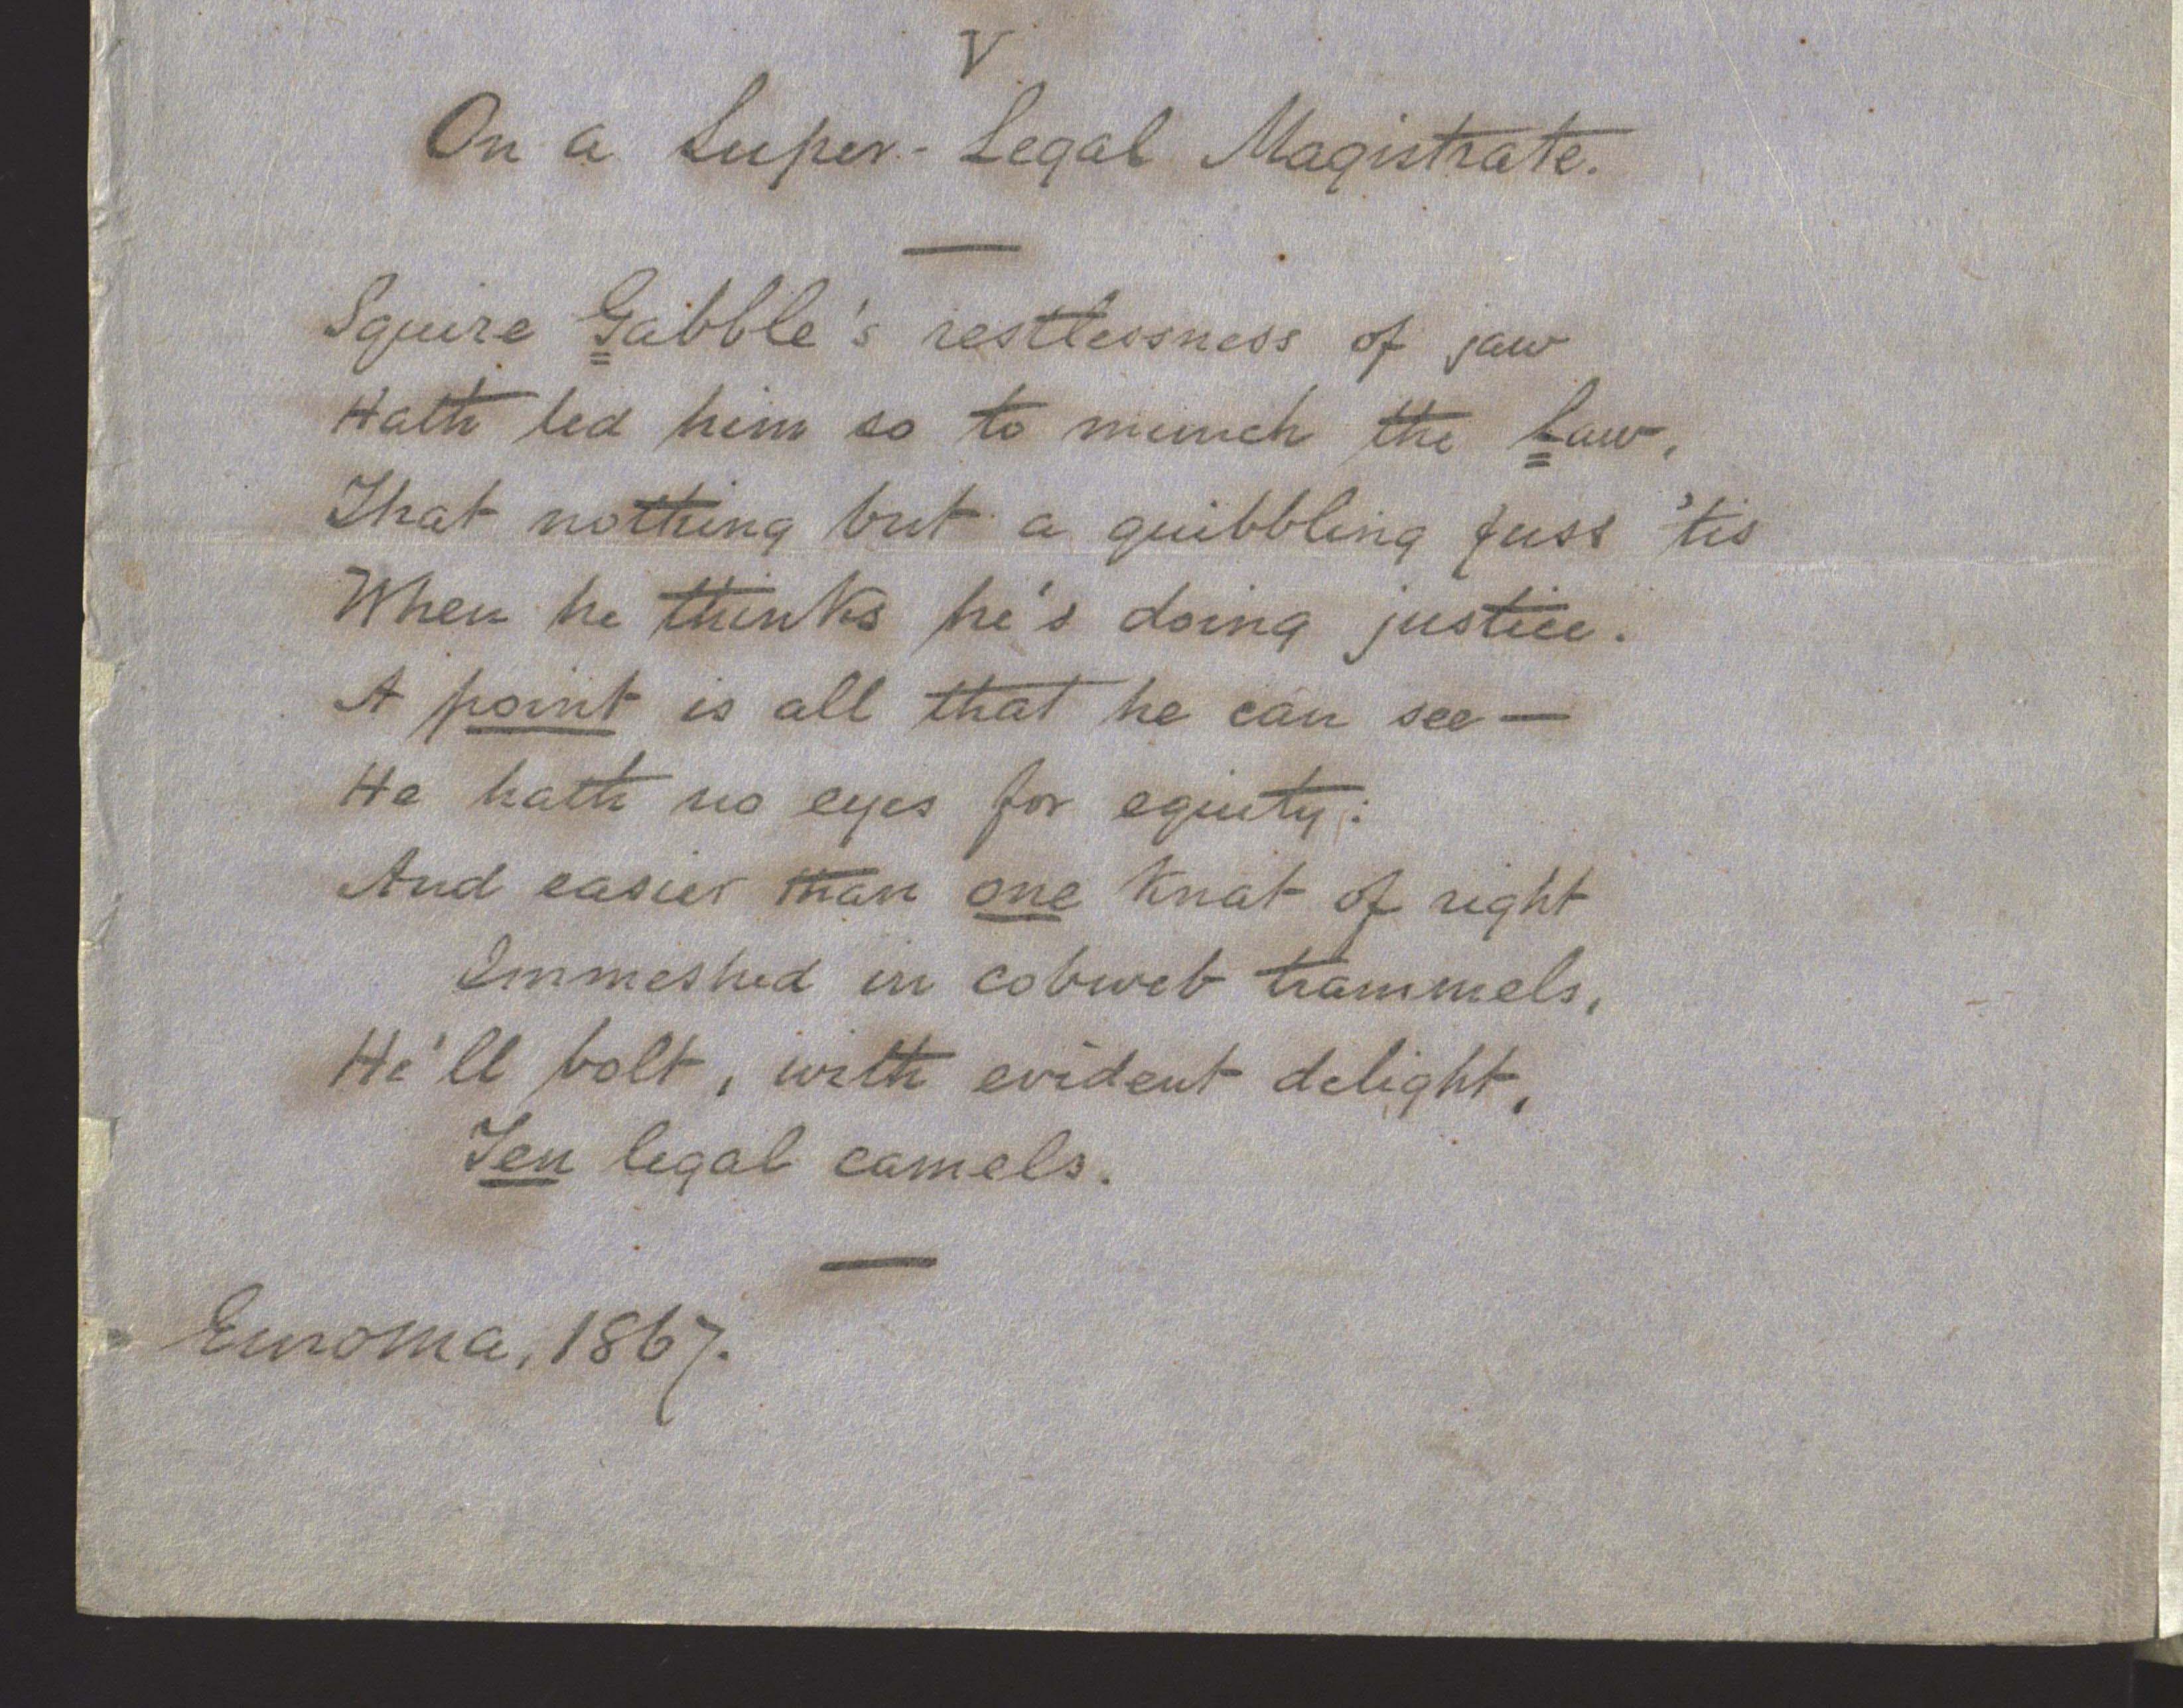 V
On a Super-Legal Magistrate.
Squire Gabble's restlessness of jaw
Hath led him so to munch the Law,
That nothing but a quibbling fuss 'tis
When he thinks he's doing justice.
A point is all that he can see—
He hath no eyes for equity:
And easier than one knat of right
Immeshed in cobweb trammels,
He'll bolt, with evident delight,
Ten legal camels.
Euroma, 1867.